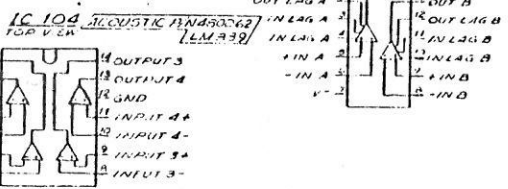 IC 104 ACOUSTIC P/N 480062
TOP VIEW LM339
14 OUTPUT 3
13 OUTPUT 4
12 GND
11 INPUT 4+
10 INPUT 4-
9 INPUT 3+
8 INPUT 3-
OUT LAG A
IN LAG A
IN LAG A
+IN A
-IN A
V-
OUT B
12 OUT LAG B
IN LAG B
IN LAG B
+IN B
8 -IN B